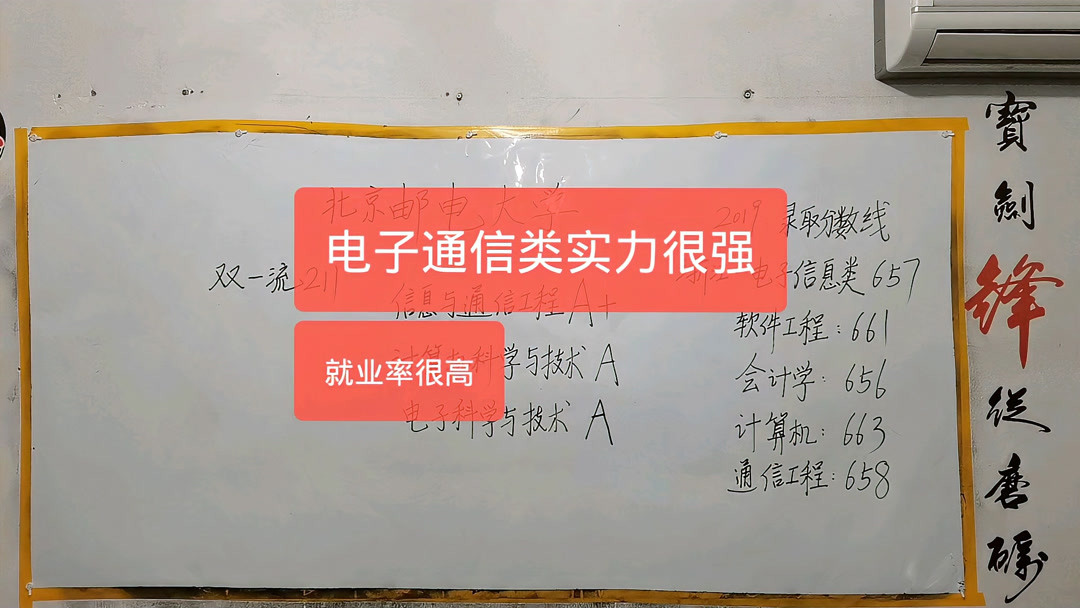 北京邮电大学
电子通信类实力很强
双一流,211
信息与通信工程 A+
就业率很高
计算机科学与技术 A
电子科学与技术 A
2019 录取分数线
浙江 电子信息类 657
软件工程:661
会计学:656
计算机:663
通信工程:658
寶劍鋒從磨礪